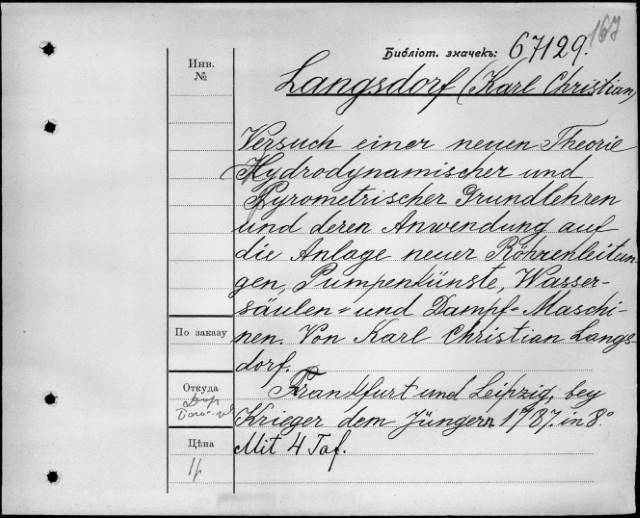 167
Библіот. значекъ: 67129.
Инв.
№
Langsdorf (Karl Christian)
Versuch einer neuen Theorie
Hydrodynamischer und
Pyrometrischer Grundlehren
und deren Anwendung auf
die Anlage neuer Röhrenleitun-
gen, Pumpenkünste, Wasser-
säulen- und Dampf-Maschi-
nen. Von Karl Christian Langs
dorf.
По заказу
Frankfurt und Leipzig, bey
Krieger dem Jüngern 1787. in 8°
Mit 4 Taf.
Откуда
Цѣна